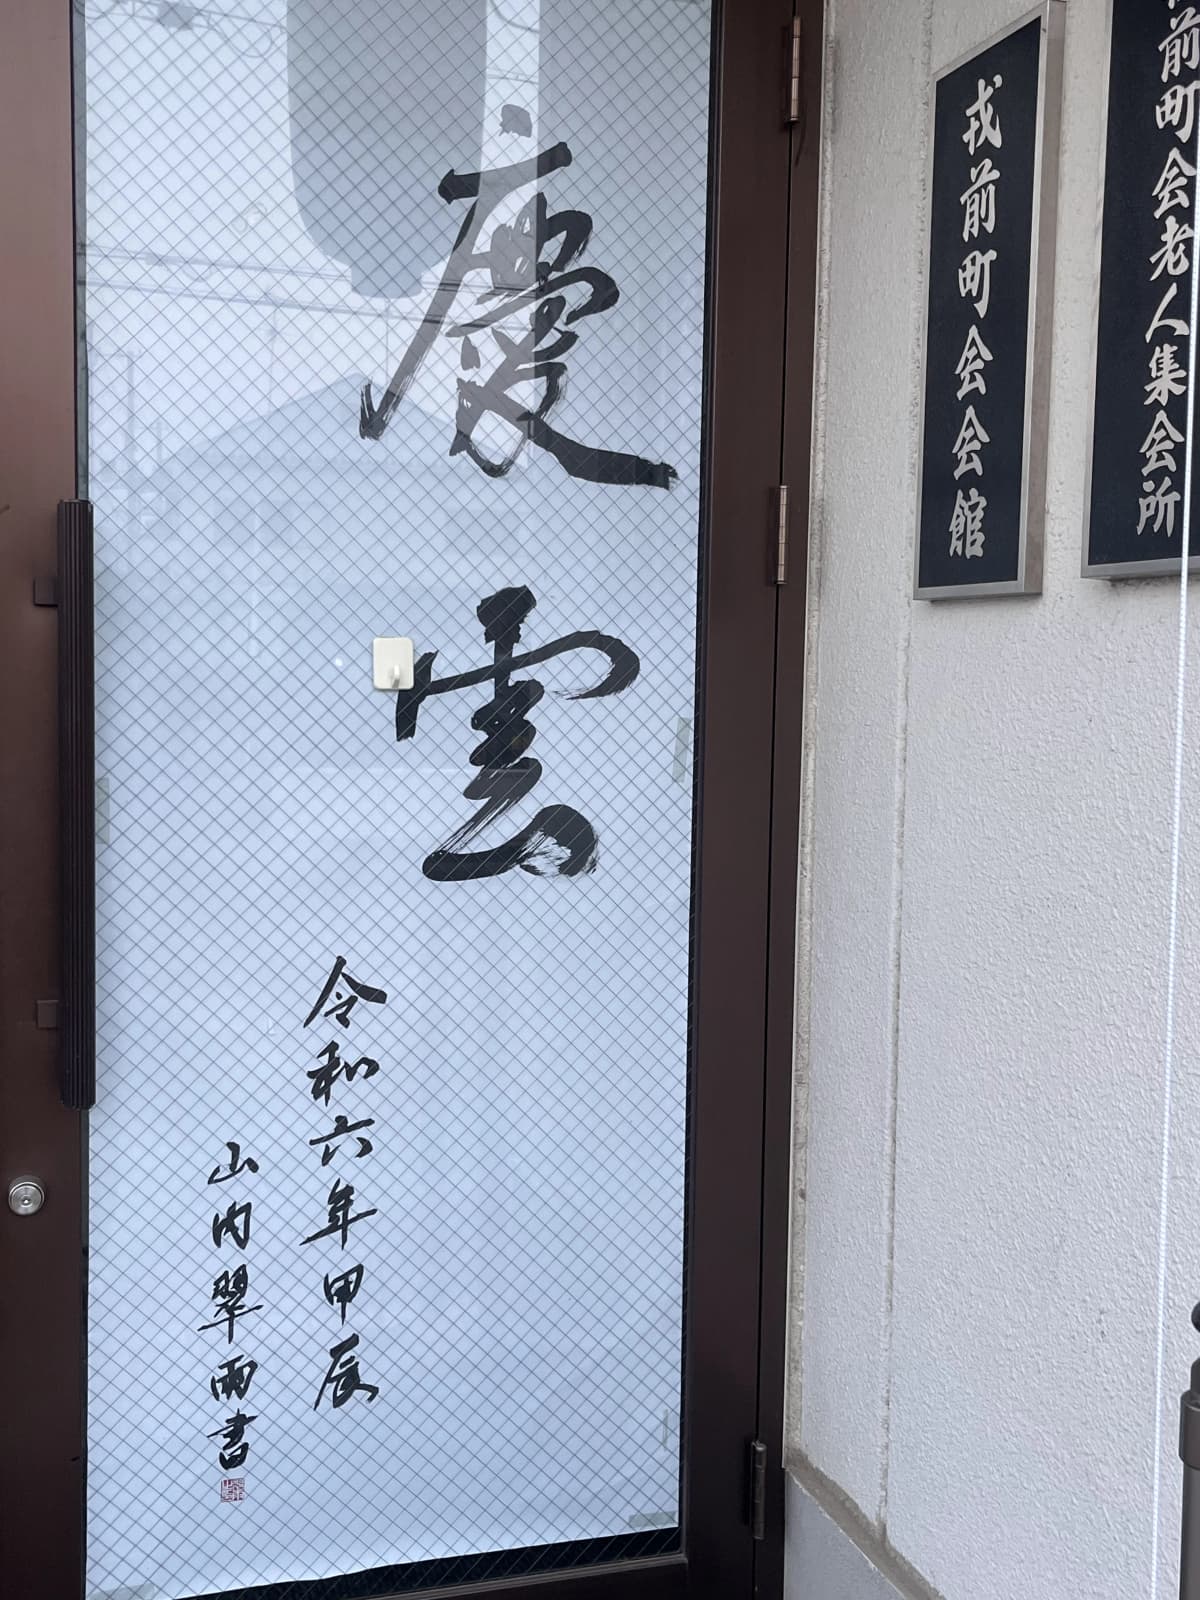 前町会老人集会所
戎前町会会館
慶雲
令和六年甲辰
山内翠雨書